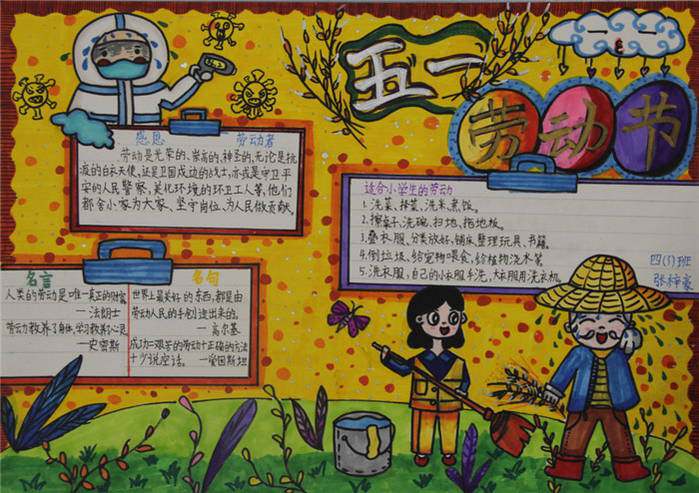 五一
劳动节
感恩 劳动者
劳动是光荣的、崇高的、神圣的,无论是抗
疫的白衣天使,还是卫国戍边的战士,亦或是守卫平
安的人民警察,美化环境的环卫工人等,他们
都舍小家为大家、坚守岗位,为人民做贡献。
适合小学生的劳动
1.洗菜、择菜、洗米、煮饭。
2.擦桌子、洗碗、扫地、拖地板。
3.叠衣服、分类放好、铺床、整理玩具、书籍。
4.倒垃圾、给宠物喂食、给植物浇水等
5.洗衣服,自己的小衣服手洗,大衣服用洗衣机。
四(1)班
张梓豪
名言
人类的劳动是唯一真正的财富
—法朗士
劳动教养了身体,学习教养了心灵
—史密斯
名句
世界上最美好的东西,都是由
劳动人民的手创造出来的。
—高尔基
成功=艰苦的劳动+正确的方法
+少说空话。—爱因斯坦